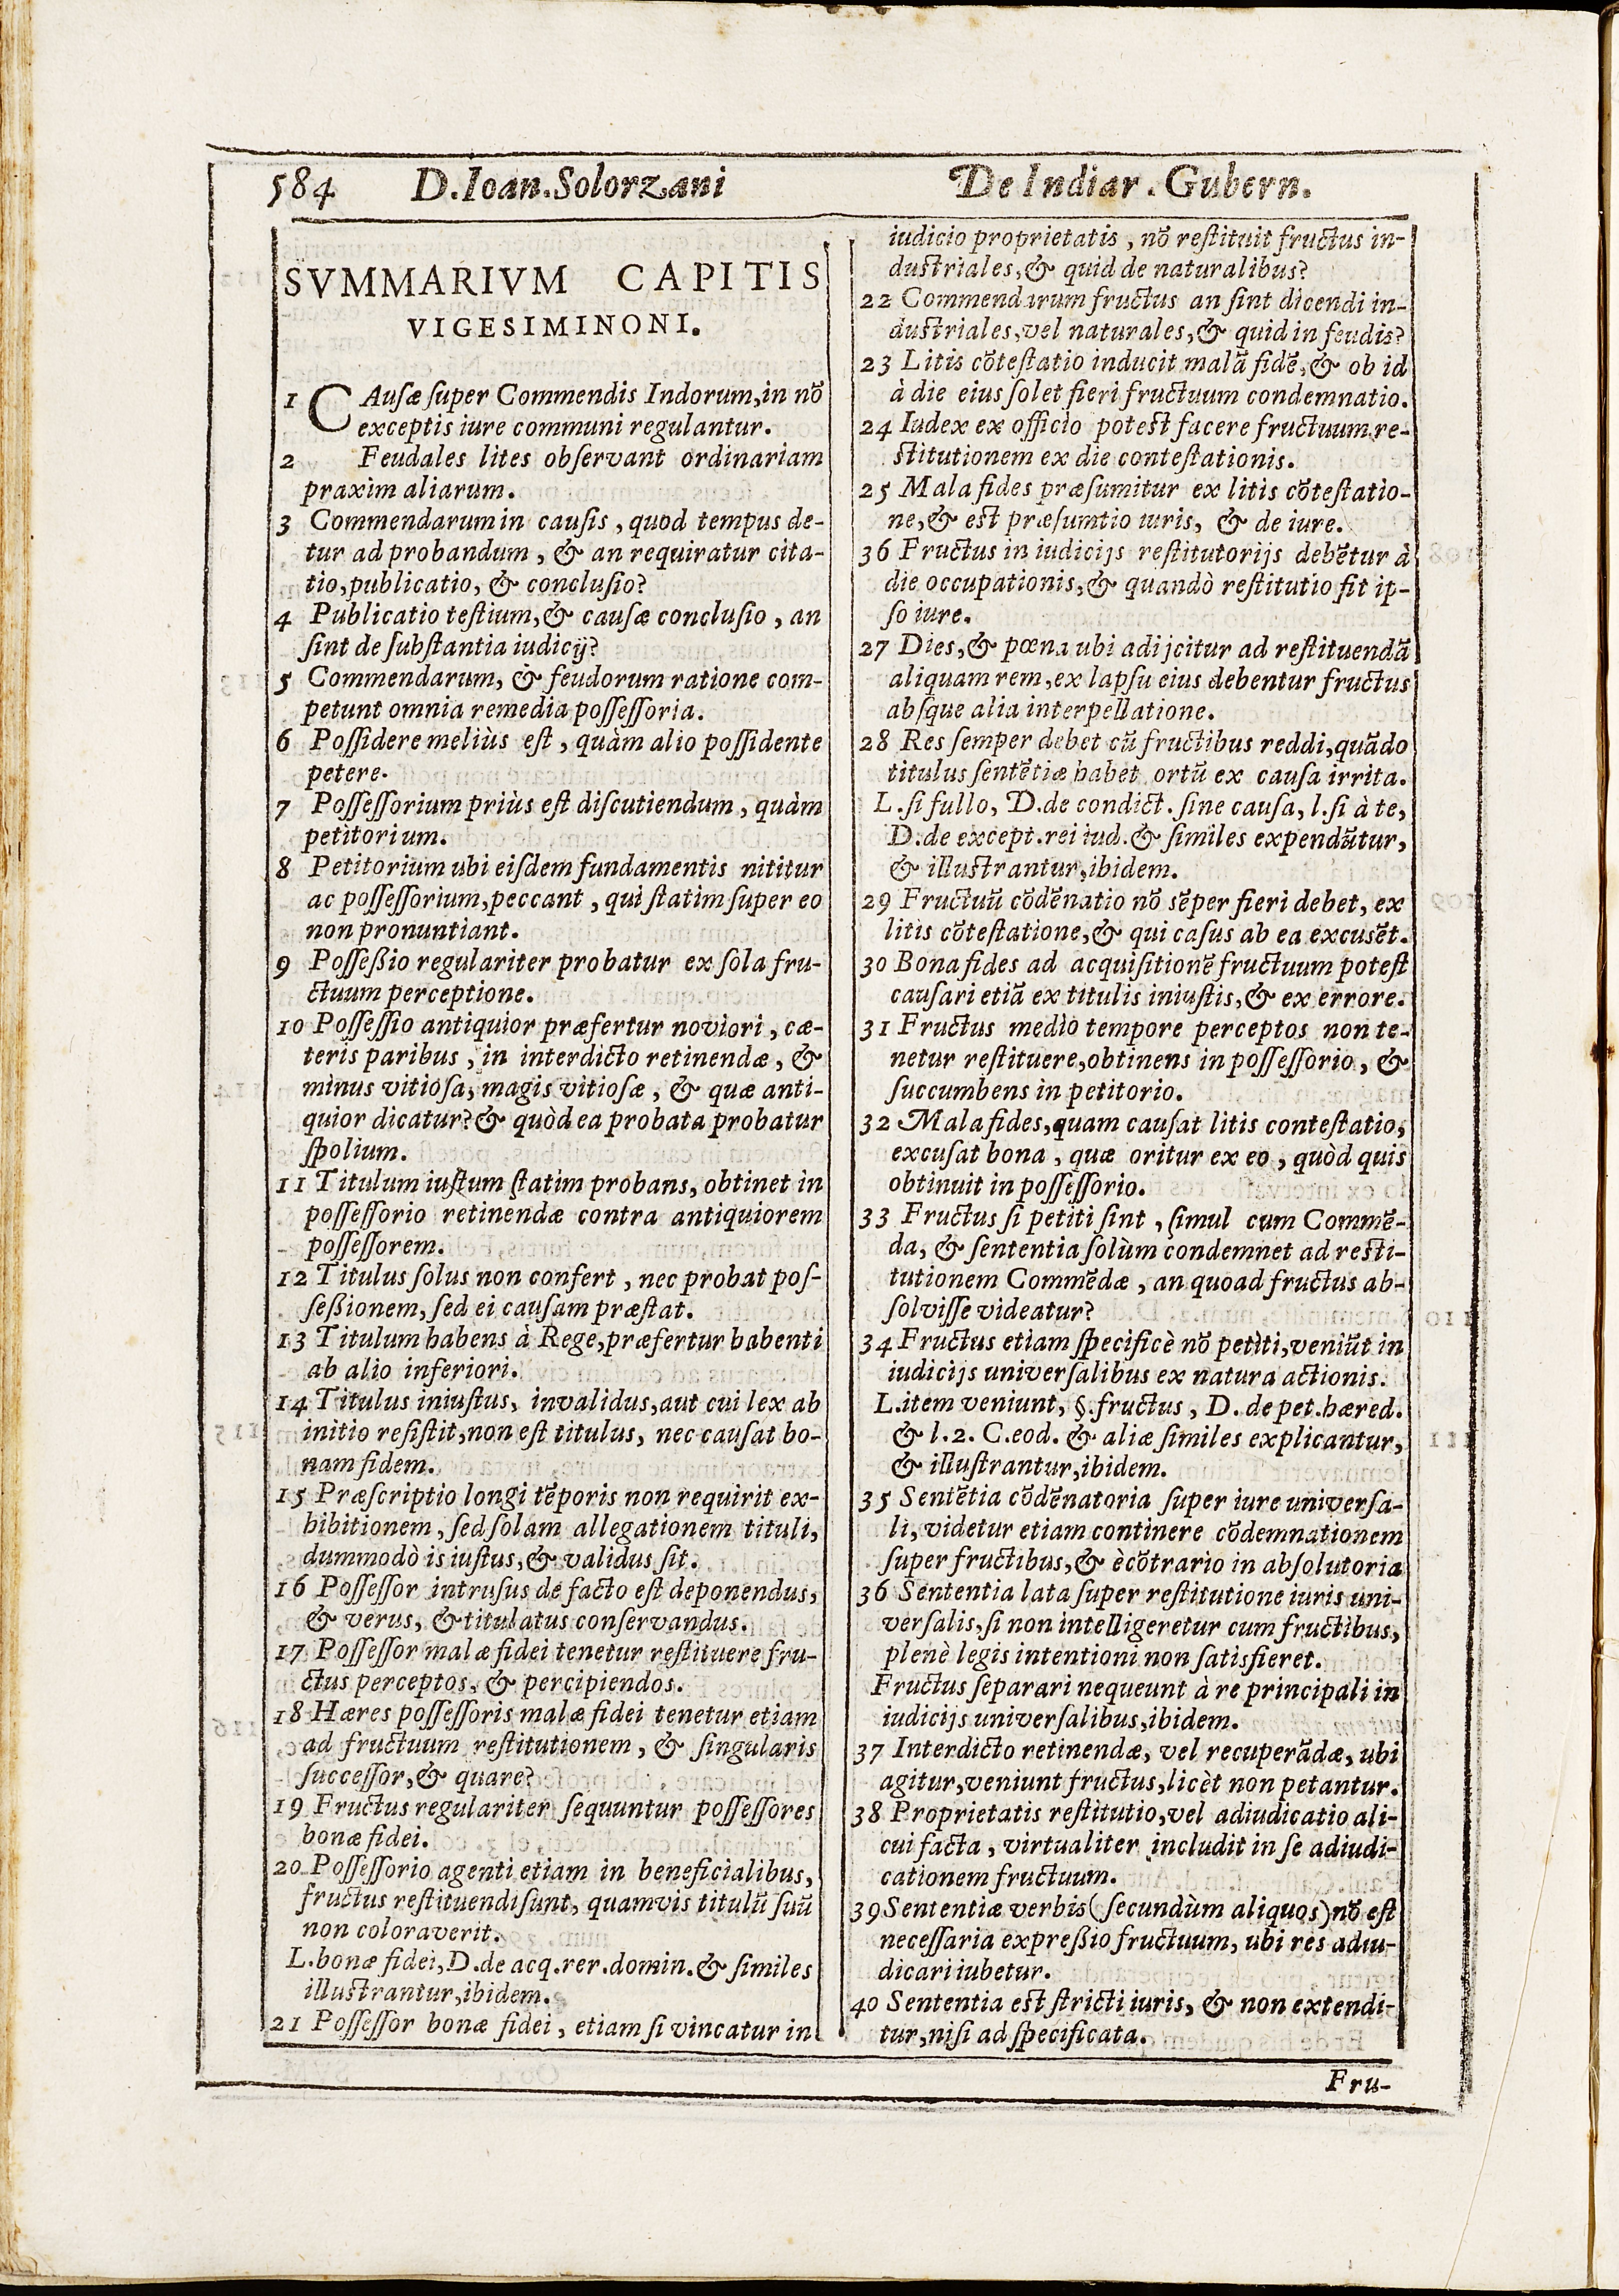 584 D.Ioan.Solorzani De Indiar. Gubern.
SVMMARIVM CAPITIS
VIGESIMINONI.
1 CAuſæ ſuper Commendis Indorum,in nõ
exceptis iure communi regulantur.
2 Feudales lites obſervant ordinariam
praxim aliarum.
3 Commendarum in cauſis, quod tempus de-
tur ad probandum, & an requiratur cita-
tio,publicatio, & concluſio?
4 Publicatio teſtium,& cauſæ concluſio, an
ſint de ſubſtantia iudicij?
5 Commendarum, & feudorum ratione com-
petunt omnia remedia poſſeſſoria.
6 Poſſidere meliùs eſt, quàm alio poſſidente
petere.
7 Poſſeſſorium priùs eſt diſcutiendum, quàm
petitorium.
8 Petitorium ubi eiſdem fundamentis nititur
ac poſſeſſorium,peccant, qui ſtatim ſuper eo
non pronuntiant.
9 Poſſeßio regulariter probatur ex ſola fru-
ctuum perceptione.
10 Poſſeſſio antiquior præfertur noviori, cæ-
teris paribus, in interdicto retinendæ, &
minus vitioſa, magis vitioſæ, & quæ anti-
quior dicatur? & quòd ea probata probatur
ſpolium.
11 Titulum iuſtum ſtatim probans, obtinet in
poſſeſſorio retinendæ contra antiquiorem
poſſeſſorem.
12 Titulus ſolus non confert, nec probat poſ-
ſeßionem, ſed ei cauſam præſtat.
13 Titulum habens à Rege,præfertur habenti
ab alio inferiori.
14 Titulus iniuſtus, invalidus,aut cui lex ab
initio reſiſtit,non eſt titulus, nec cauſat bo-
nam fidem.
15 Præſcriptio longi tẽporis non requirit ex-
hibitionem, ſed ſolam allegationem tituli,
dummodò is iuſtus,& validus ſit.
16 Poſſeſſor intruſus de facto eſt deponendus,
& verus, & titulatus conſervandus.
17 Poſſeſſor malæ fidei tenetur reſtituere fru-
ctus perceptos, & percipiendos.
18 Hæres poſſeſſoris malæ fidei tenetur etiam
ad fructuum reſtitutionem, & ſingularis
ſucceſſor,& quare?
19 Fructus regulariter ſequuntur poſſeſſores
bonæ fidei.
20 Poſſeſſorio agenti etiam in beneficialibus,
fructus reſtituendi ſunt, quamvis titulũ ſuũ
non coloraverit.
L.bonæ fidei,D.de acq.rer.domin.& ſimiles
illuſtrantur,ibidem.
21 Poſſeſſor bonæ fidei, etiam ſi vincatur in
iudicio proprietatis, nõ reſtituit fructus in-
duſtriales,& quid de naturalibus?
22 Commendarum fructus an ſint dicendi in-
duſtriales,vel naturales,& quid in feudis?
23 Litis cõteſtatio inducit malã fidẽ,& ob id
à die eius ſolet fieri fructuum condemnatio.
24 Iudex ex officio poteſt facere fructuum re-
ſtitutionem ex die conteſtationis.
25 Mala fides præſumitur ex litis cõteſtatio-
ne,& eſt præſumtio iuris, & de iure.
36 Fructus in iudicijs reſtitutorijs debẽtur à
die occupationis,& quandò reſtitutio fit ip-
ſo iure.
27 Dies,& pœna ubi adijcitur ad reſtituendã
aliquam rem,ex lapſu eius debentur fructus
abſque alia interpellatione.
28 Res ſemper debet cũ fructibus reddi,quãdo
titulus ſentẽtiæ habet ortũ ex cauſa irrita.
L.ſi fullo, D.de condict.ſine cauſa, l.ſi à te,
D.de except.rei iud.& ſimiles expendũtur,
& illuſtrantur,ibidem.
29 Fructuũ cõdẽnatio nõ sẽper fieri debet, ex
litis cõteſtatione,& qui caſus ab ea excuſẽt.
30 Bona fides ad acquiſitionẽ fructuum poteſt
cauſari etiã ex titulis iniuſtis,& ex errore.
31 Fructus medio tempore perceptos non te-
netur reſtituere,obtinens in poſſeſſorio, &
ſuccumbens in petitorio.
32 Mala fides,quam cauſat litis conteſtatio,
excuſat bona, quæ oritur ex eo, quòd quis
obtinuit in poſſeſſorio.
33 Fructus ſi petiti ſint, ſimul cum Commẽ-
da, & ſententia ſolùm condemnet ad reſti-
tutionem Commẽdæ, an quoad fructus ab-
ſolviſſe videatur?
34 Fructus etiam ſpecificè nõ petiti,veniũt in
iudicijs univerſalibus ex natura actionis.
L.item veniunt, §.fructus, D. de pet.hæred.
& l.2. C.eod. & aliæ ſimiles explicantur,
& illuſtrantur,ibidem.
35 Sentẽtia cõdẽnatoria ſuper iure univerſa-
li, videtur etiam continere cõdemnationem
ſuper fructibus,& ècõtrario in abſolutoria
36 Sententia lata ſuper reſtitutione iuris uni-
verſalis,ſi non intelligeretur cum fructibus,
plenè legis intentioni non ſatisfieret.
Fructus ſeparari nequeunt à re principali in
iudicijs univerſalibus,ibidem.
37 Interdicto retinendæ, vel recuperãdæ, ubi
agitur,veniunt fructus,licèt non petantur.
38 Proprietatis reſtitutio,vel adiudicatio ali-
cui facta, virtualiter includit in ſe adiudi-
cationem fructuum.
39 Sententiæ verbis (ſecundùm aliquos) nõ eſt
neceſſaria expreßio fructuum, ubi res adiu-
dicari iubetur.
40 Sententia eſt ſtricti iuris, & non extendi-
tur,niſi ad ſpecificata.
Fru-